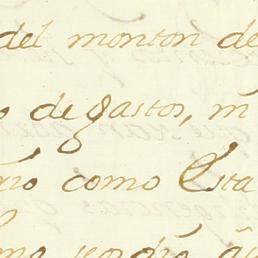 del monton de
o de gastos, m
rio como Esta